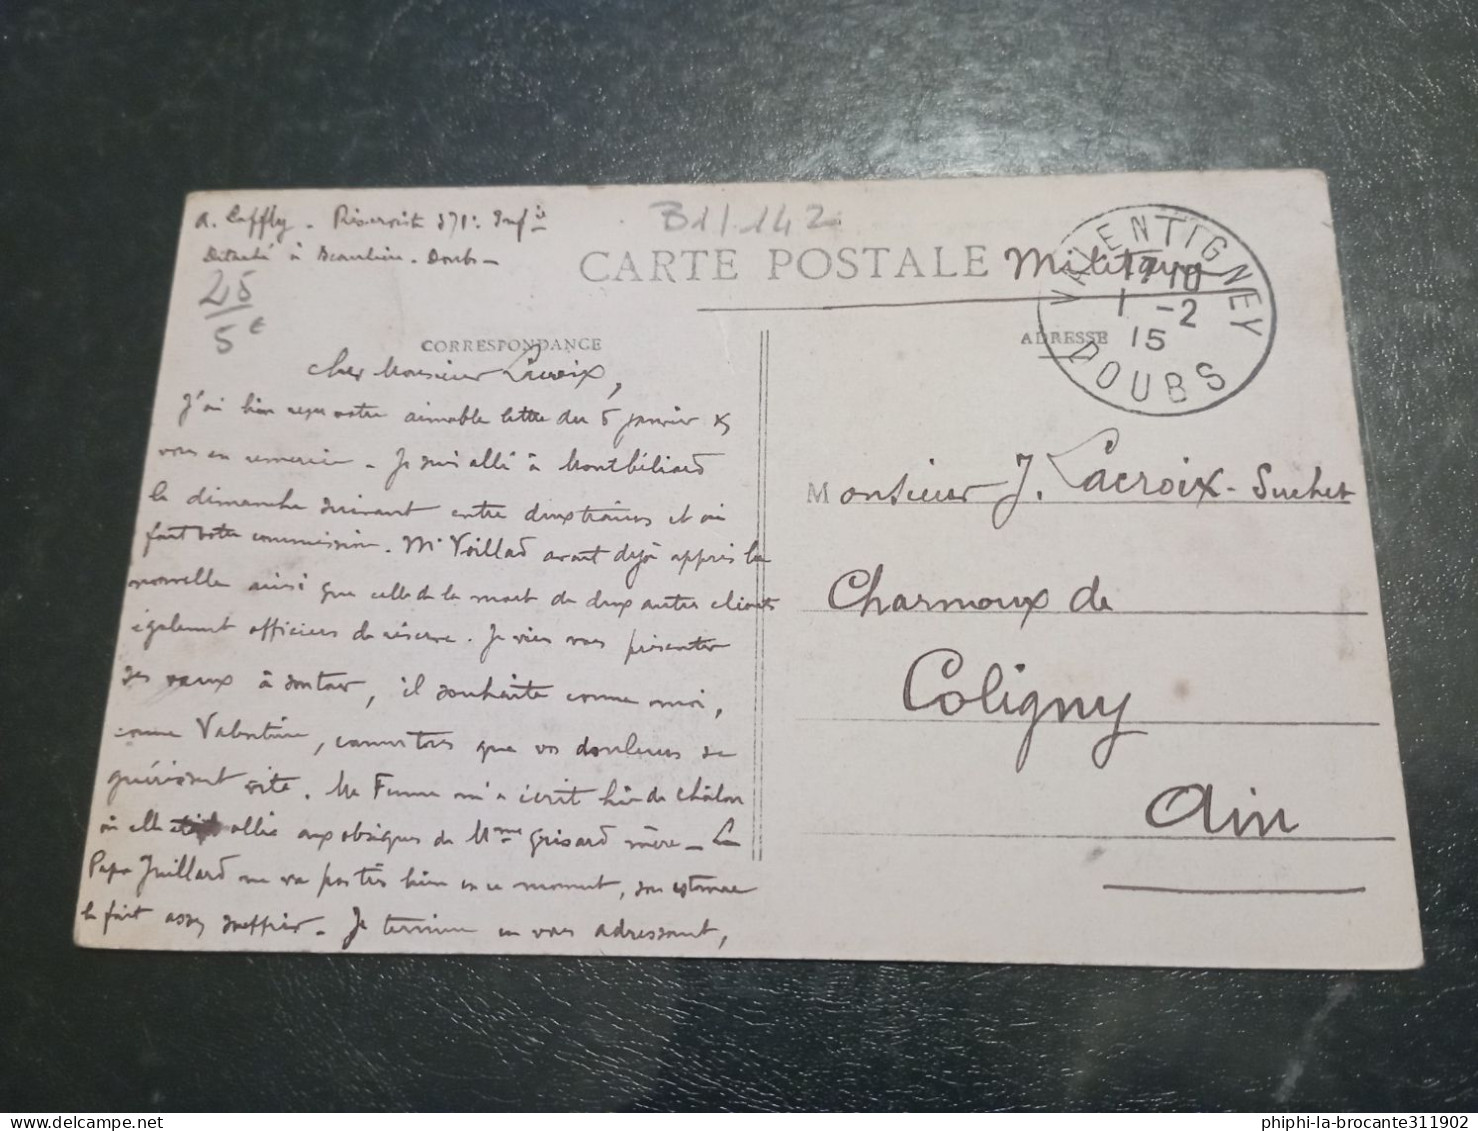 A. Laffly. Réserviste 371e Infie
Détaché à Beaulieu. Doubs
B11.142
CARTE POSTALE Militaire
VALENTIGNEY
17 10
1 -2
15
DOUBS
25
5€
CORRESPONDANCE
ADRESSE
Cher Monsieur Lacroix,
J'ai bien reçu votre aimable lettre du 5 janvier &
vous en remercie. Je suis allé à Montbéliard
le dimanche suivant entre deux trains et ai
fait votre commission. Mr Voillard avait déjà appris la
nouvelle ainsi que celle de la mort de deux autres clients
également officiers de réserve. Je viens vous présenter
ses vœux à , il souhaite comme moi,
comme Valentine, que vos douleurs se
guérissent vite. Ma Femme m'a écrit hier de Châlon
où elle allée aux obsèques de Mme Grisard mère. Le
Papa Juillard ne va pas très bien en ce moment, son estomac
le fait assez souffrir. Je termine en vous adressant,
Monsieur J. Lacroix-Suchet
Charmoux de
Coligny
Ain
delcampe.net
phiphi-la-brocante311902